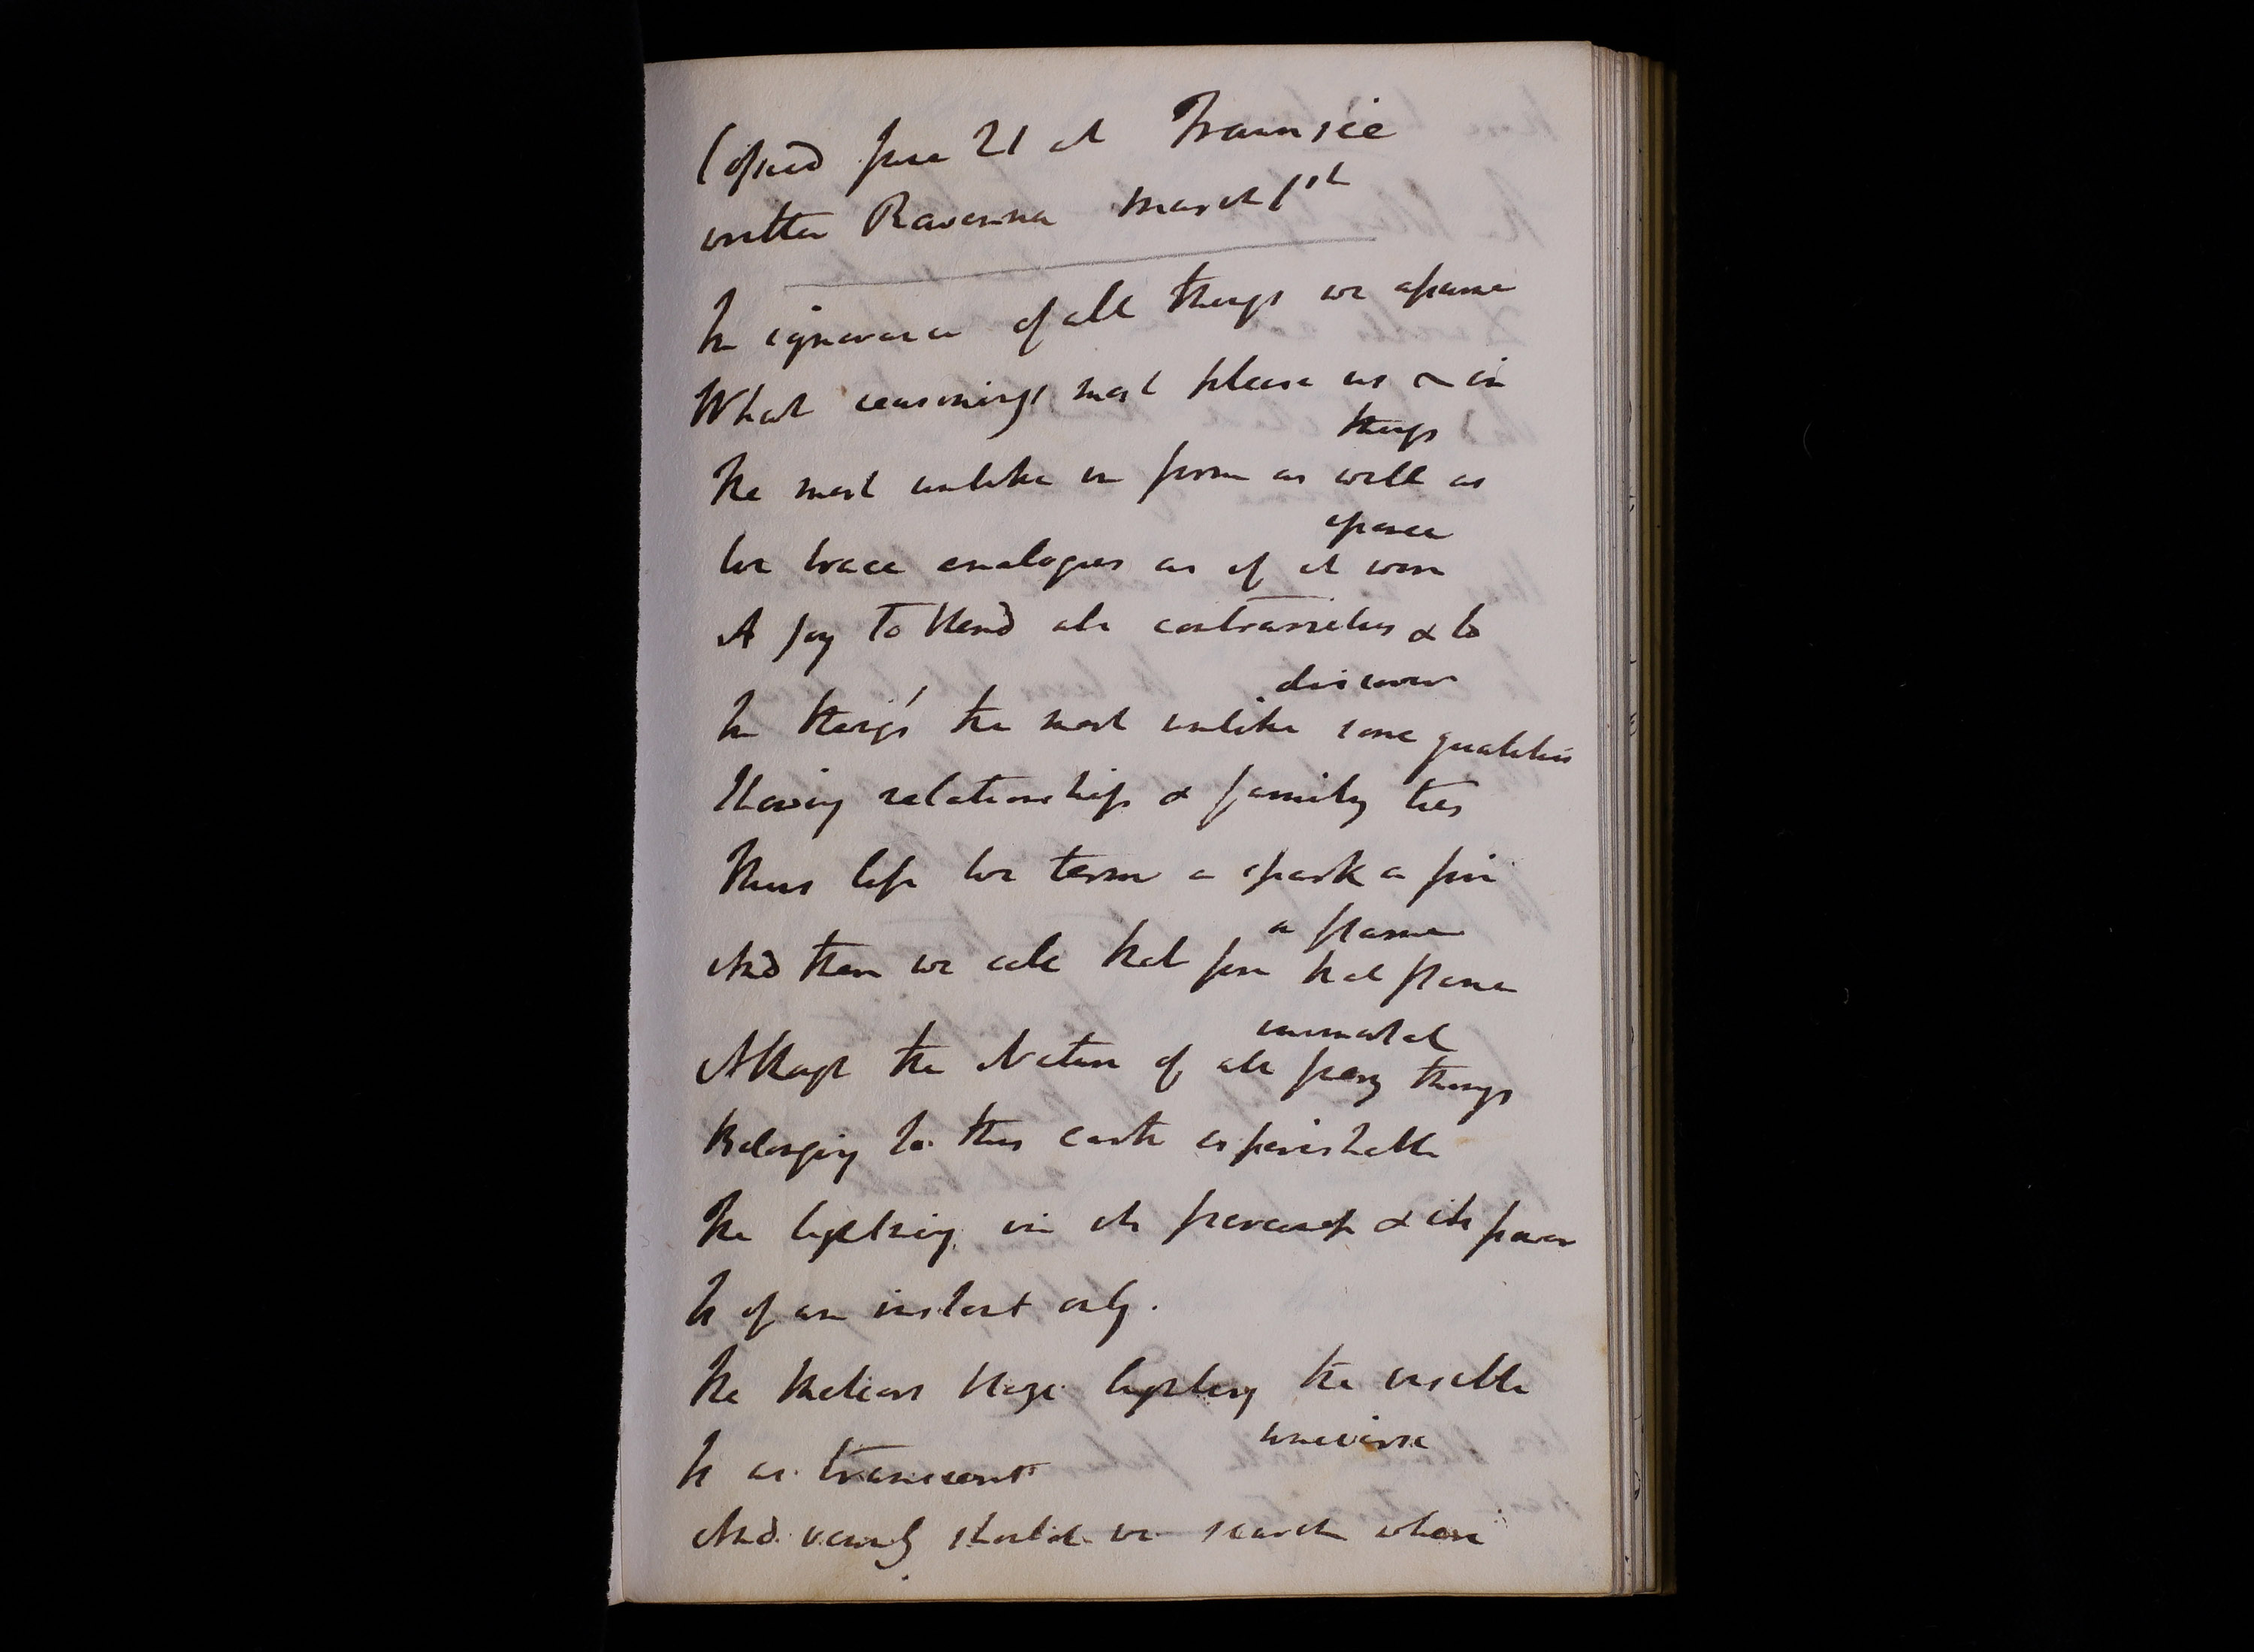 Copied June 21 at Traunsee
written Ravenna March 1st
In ignorance of all things we assume
What reasonings most please us & in
things
The most unlike in form as well as
essence
We trace analogies as if it were
A joy to blend all contrarieties & to
discover
In things the most unlike some qualities
Having relationship & family ties
Thus life we term a spark a fire
a flame
And then we call that fire that flame
immortal
Although the Nature of all fiery things
Belonging to this earth is perishable
The lightning in its & its power
Is of an instant only.
The Meteors blaze lighting the visible
universe
Is as transient
And vainly should we search where